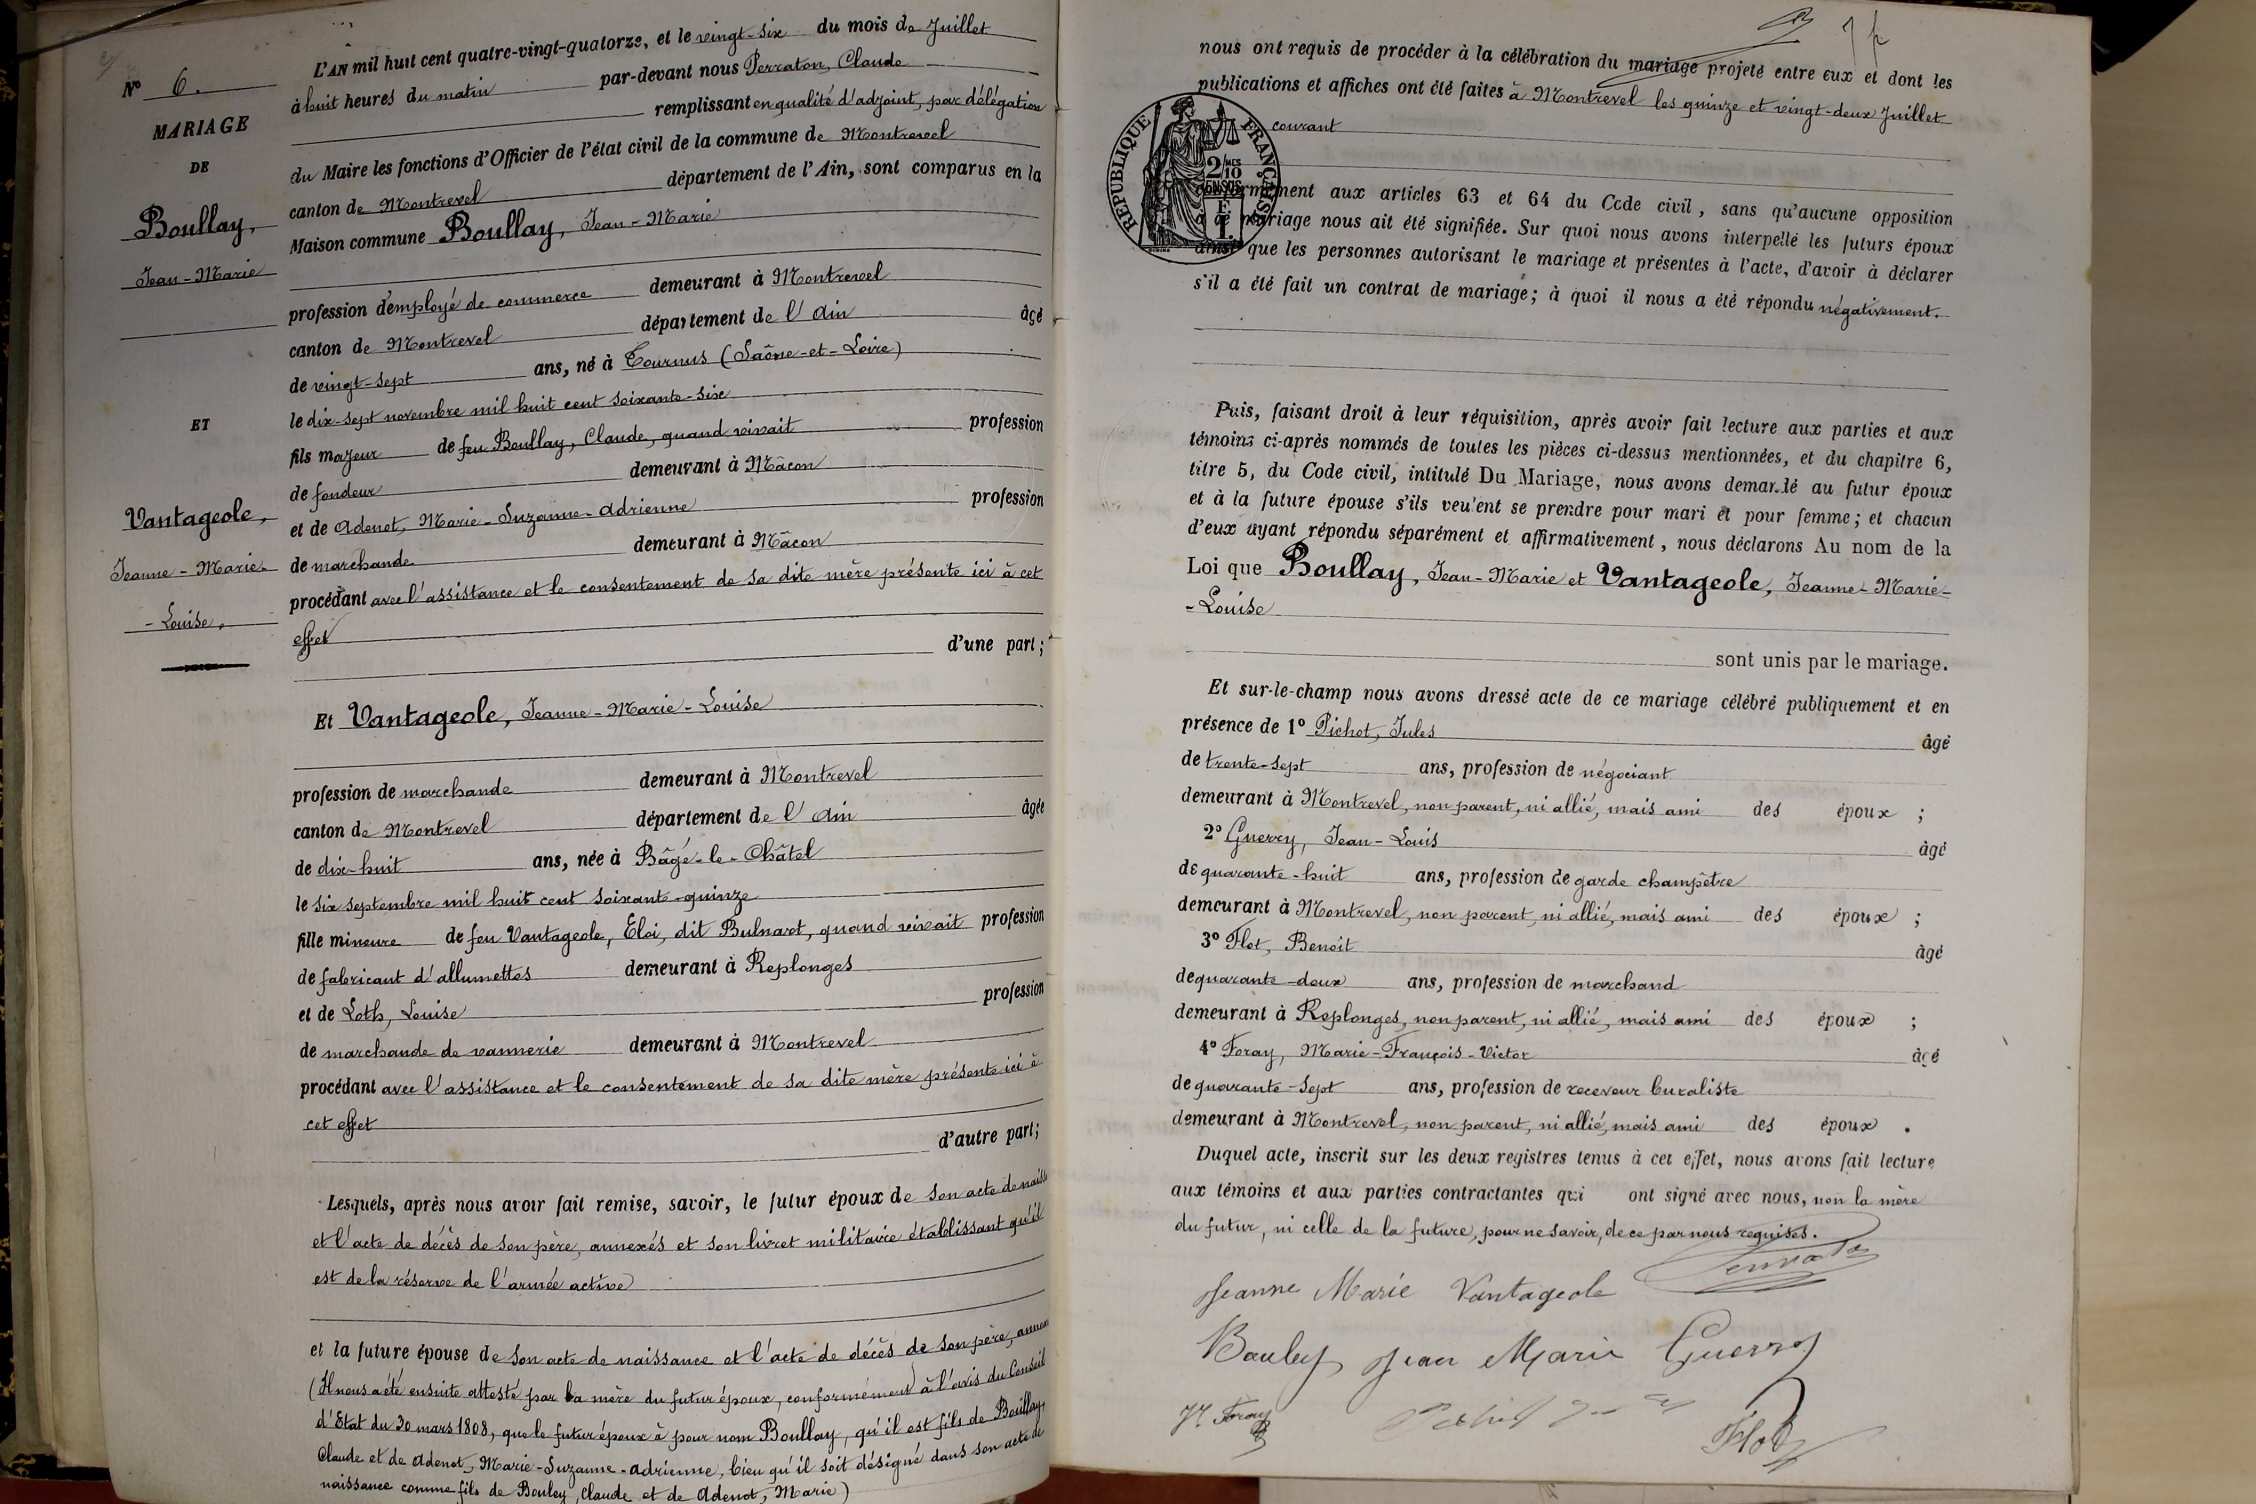 N° 6.
MARIAGE
DE
Boullay,
Jean-Marie
ET
Vantageole,
Jeanne-Marie-
-Louise,
L'AN mil huit cent quatre-vingt-quatorze, et le vingt-six du mois de Juillet
à huit heures du matin par-devant nous Perraton, Claude
remplissant en qualité d'adjoint, par délégation
du Maire les fonctions d'Officier de l'état civil de la commune de Montrevel
canton de Montrevel département de l'Ain, sont comparus en la
Maison commune Boullay, Jean-Marie
profession d'employé de commerce demeurant à Montrevel
canton de Montrevel département de l'Ain âgé
de vingt-sept ans, né à Tournus (Saône-et-Loire)
le dix-sept novembre mil huit cent soixante-six
fils majeur de feu Boullay, Claude, quand vivait profession
de fondeur demeurant à Mâcon
et de Adenot, Marie-Suzanne-Adrienne profession
de marchande demeurant à Mâcon
procédant avec l'assistance et le consentement de sa dite mère présente ici à cet
effet
d'une part;
Et Vantageole, Jeanne-Marie-Louise
profession de marchande demeurant à Montrevel
canton de Montrevel département de l'Ain âgée
de dix-huit ans, née à Bâgé-le-Châtel
le six septembre mil huit cent soixante-quinze
fille mineure de feu Vantageole, Eloi, dit Bulnarot, quand vivait profession
de fabricant d'allumettes demeurant à Replonges
et de Loth, Louise profession
de marchande de vannerie demeurant à Montrevel
procédant avec l'assistance et le consentement de sa dite mère présente ici à
cet effet
d'autre part;
Lesquels, après nous avoir fait remise, savoir, le futur époux de son acte de naiss
et l'acte de décès de son père, annexés et son livret militaire établissant qu'il
est de la réserve de l'armée active
et la future épouse de son acte de naissance et l'acte de décès de son père, annex
(Il nous a été ensuite attesté par la mère du futur époux, conformément à l'avis du Conseil
d'Etat du 30 mars 1808, que le futur époux à pour nom Boullay, qu'il est fils de Boullay,
Claude et de Adenot, Marie-Suzanne-Adrienne, bien qu'il soit désigné dans son acte de
naissance comme fils de Bouley, Claude et de Adenot, Marie)
nous ont requis de procéder à la célébration du mariage projeté entre eux et dont les
publications et affiches ont été faites à Montrevel les quinze et vingt-deux Juillet
courant
REPUBLIQUE FRANÇAISE
2 10
EN SUS
conformément aux articles 63 et 64 du Code civil, sans qu'aucune opposition
à ce mariage nous ait été signifiée. Sur quoi nous avons interpellé les futurs époux
ainsi que les personnes autorisant le mariage et présentes à l'acte, d'avoir à déclarer
s'il a été fait un contrat de mariage; à quoi il nous a été répondu négativement.
Puis, faisant droit à leur réquisition, après avoir fait lecture aux parties et aux
témoins ci-après nommés de toutes les pièces ci-dessus mentionnées, et du chapitre 6,
titre 5, du Code civil, intitulé Du Mariage, nous avons demandé au futur époux
et à la future épouse s'ils veulent se prendre pour mari et pour femme; et chacun
d'eux ayant répondu séparément et affirmativement, nous déclarons Au nom de la
Loi que Boullay, Jean-Marie et Vantageole, Jeanne-Marie-
-Louise
sont unis par le mariage.
Et sur-le-champ nous avons dressé acte de ce mariage célébré publiquement et en
présence de 1° Pichot, Jules âgé
de trente-sept ans, profession de négociant
demeurant à Montrevel, non parent, ni allié, mais ami des époux ;
2° Guerry, Jean-Louis âgé
de quarante-huit ans, profession de garde champêtre
demeurant à Montrevel, non parent, ni allié, mais ami des époux ;
3° Flot, Benoît âgé
de quarante-deux ans, profession de marchand
demeurant à Replonges, non parent, ni allié, mais ami des époux ;
4° Foray, Marie-François-Victor âgé
de quarante-sept ans, profession de receveur buraliste
demeurant à Montrevel, non parent, ni allié, mais ami des époux .
Duquel acte, inscrit sur les deux registres tenus à cet effet, nous avons fait lecture
aux témoins et aux parties contractantes qui ont signé avec nous, non la mère
du futur, ni celle de la future, pour ne savoir, de ce par nous requises.
Jeanne Marie Vantageole
Bouley Jean Marie Guerry
Foray
Flot